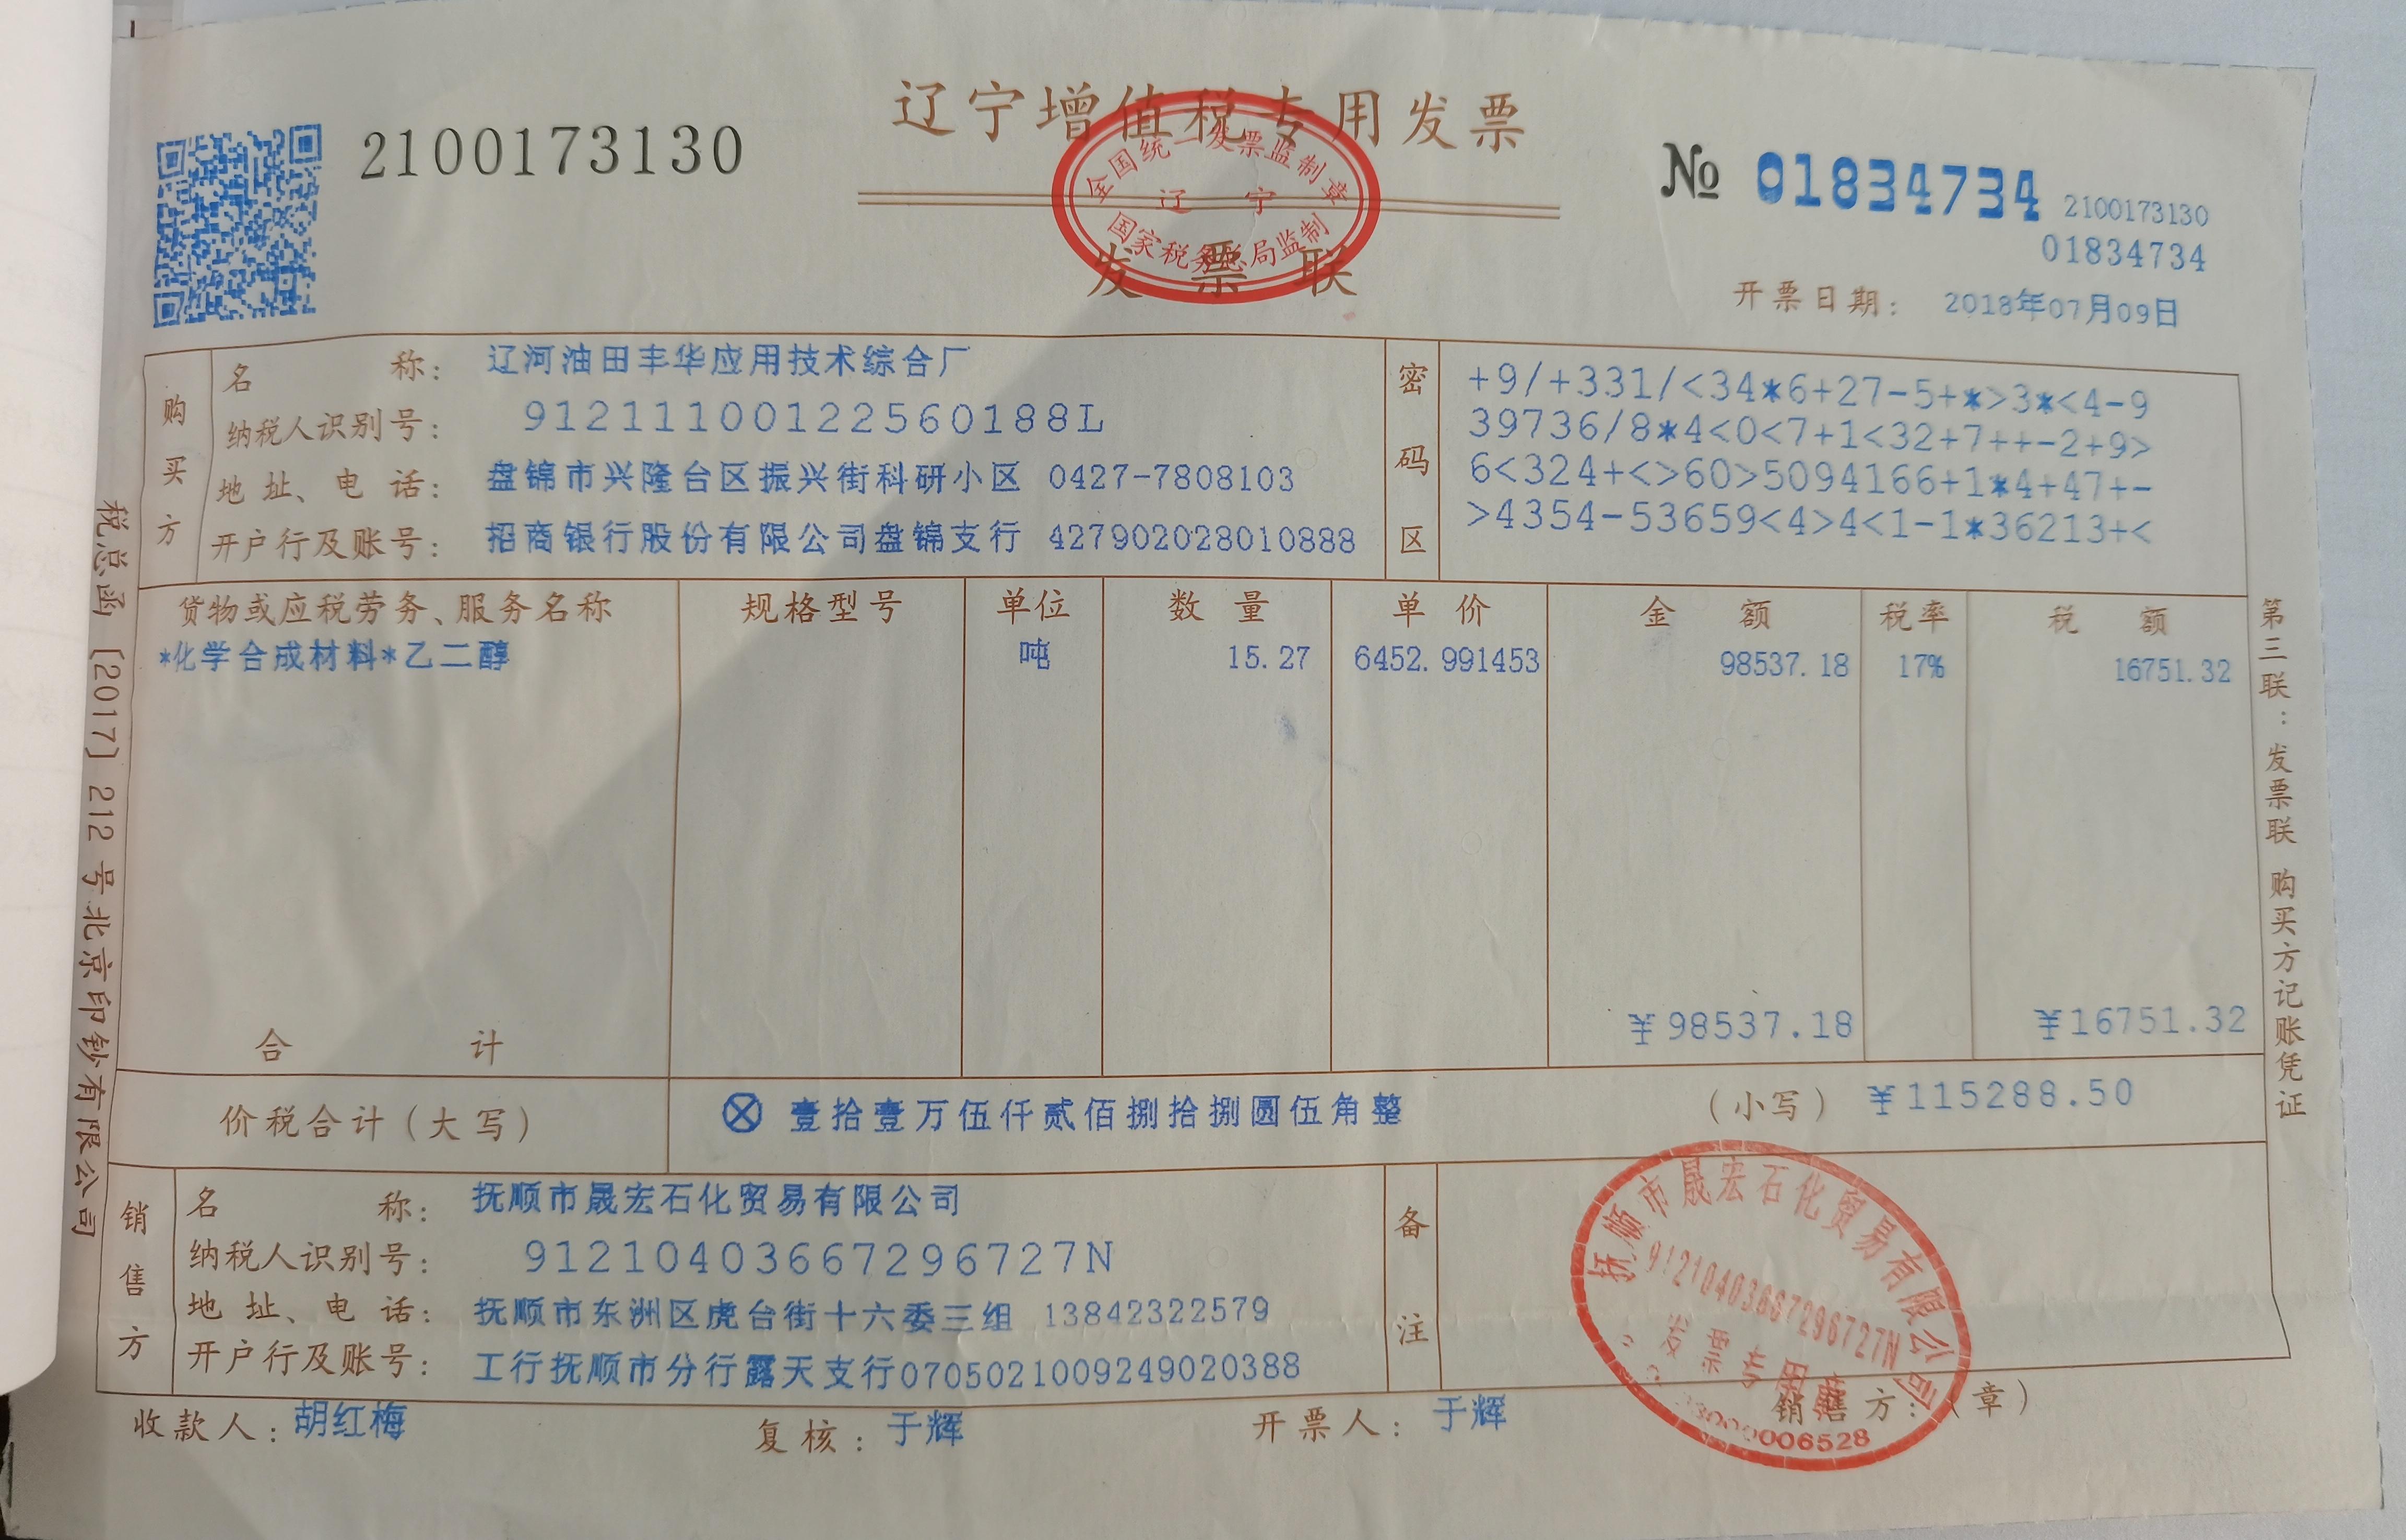 辽宁增值税专用发票
2100173130
全国统一发票监制章
辽 宁
国家税务总局监制
发 票 联
№ 01834734
2100173130
01834734
开票日期： 2018年07月09日
购买方
名 称： 辽河油田丰华应用技术综合厂
纳税人识别号： 91211100122560188L
地 址、电 话： 盘锦市兴隆台区振兴街科研小区 0427-7808103
开户行及账号： 招商银行股份有限公司盘锦支行 427902028010888
密码区
+9/+331/<34*6+27-5+*>3*<4-9
39736/8*4<0<7+1<32+7++-2+9>
6<324+<>60>5094166+1*4+47+-
>4354-53659<4>4<1-1*36213+<
货物或应税劳务、服务名称 规格型号 单位 数 量 单 价 金 额 税率 税 额
*化学合成材料*乙二醇 吨 15.27 6452.991453 98537.18 17% 16751.32
合 计 ￥98537.18 ￥16751.32
价税合计（大写） ⊗ 壹拾壹万伍仟贰佰捌拾捌圆伍角整 （小写）￥115288.50
销售方
名 称： 抚顺市晟宏石化贸易有限公司
纳税人识别号： 91210403667296727N
地 址、电 话： 抚顺市东洲区虎台街十六委三组 13842322579
开户行及账号： 工行抚顺市分行露天支行0705021009249020388
备注
抚顺市晟宏石化贸易有限公司
91210403667296727N
发票专用章
收款人： 胡红梅 复核： 于辉 开票人： 于辉 销售方：（章）
税总函〔2017〕212号北京印钞有限公司
第三联：发票联 购买方记账凭证